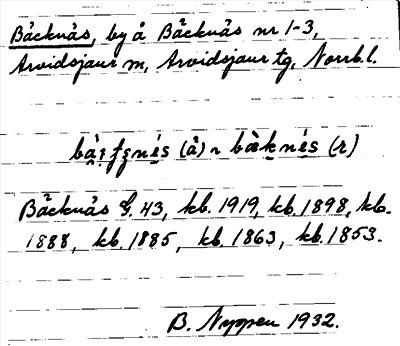 Bäcknäs, by å Bäcknäs nr 1-3,
Arvidsjaur sn, Arvidsjaur tg, Norrb.l.
(å) ~ (r)
Bäcknäs G. 43, kb. 1919, kb. 1898, kb.
1888, kb. 1885, kb. 1863, kb. 1853.
B. Nyppeu 1932.